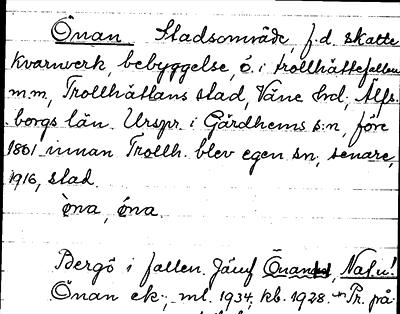 Önan Stadsområde, f.d. skatte
kvarnverk, bebyggelse, ö. i Trollhättefallen
m.m, Trollhättans stad, Väne hd, Älfs-
borgs län. Urspr. i Gärdhems s:n, före
1801 innan Trollh. blev egen sn, senare,
1916, stad.
òna, óna.
Bergö i fallen. Jämf Önan, Nat.u!
Önan ek., ml. 1934, kb. 1928. Pr. på